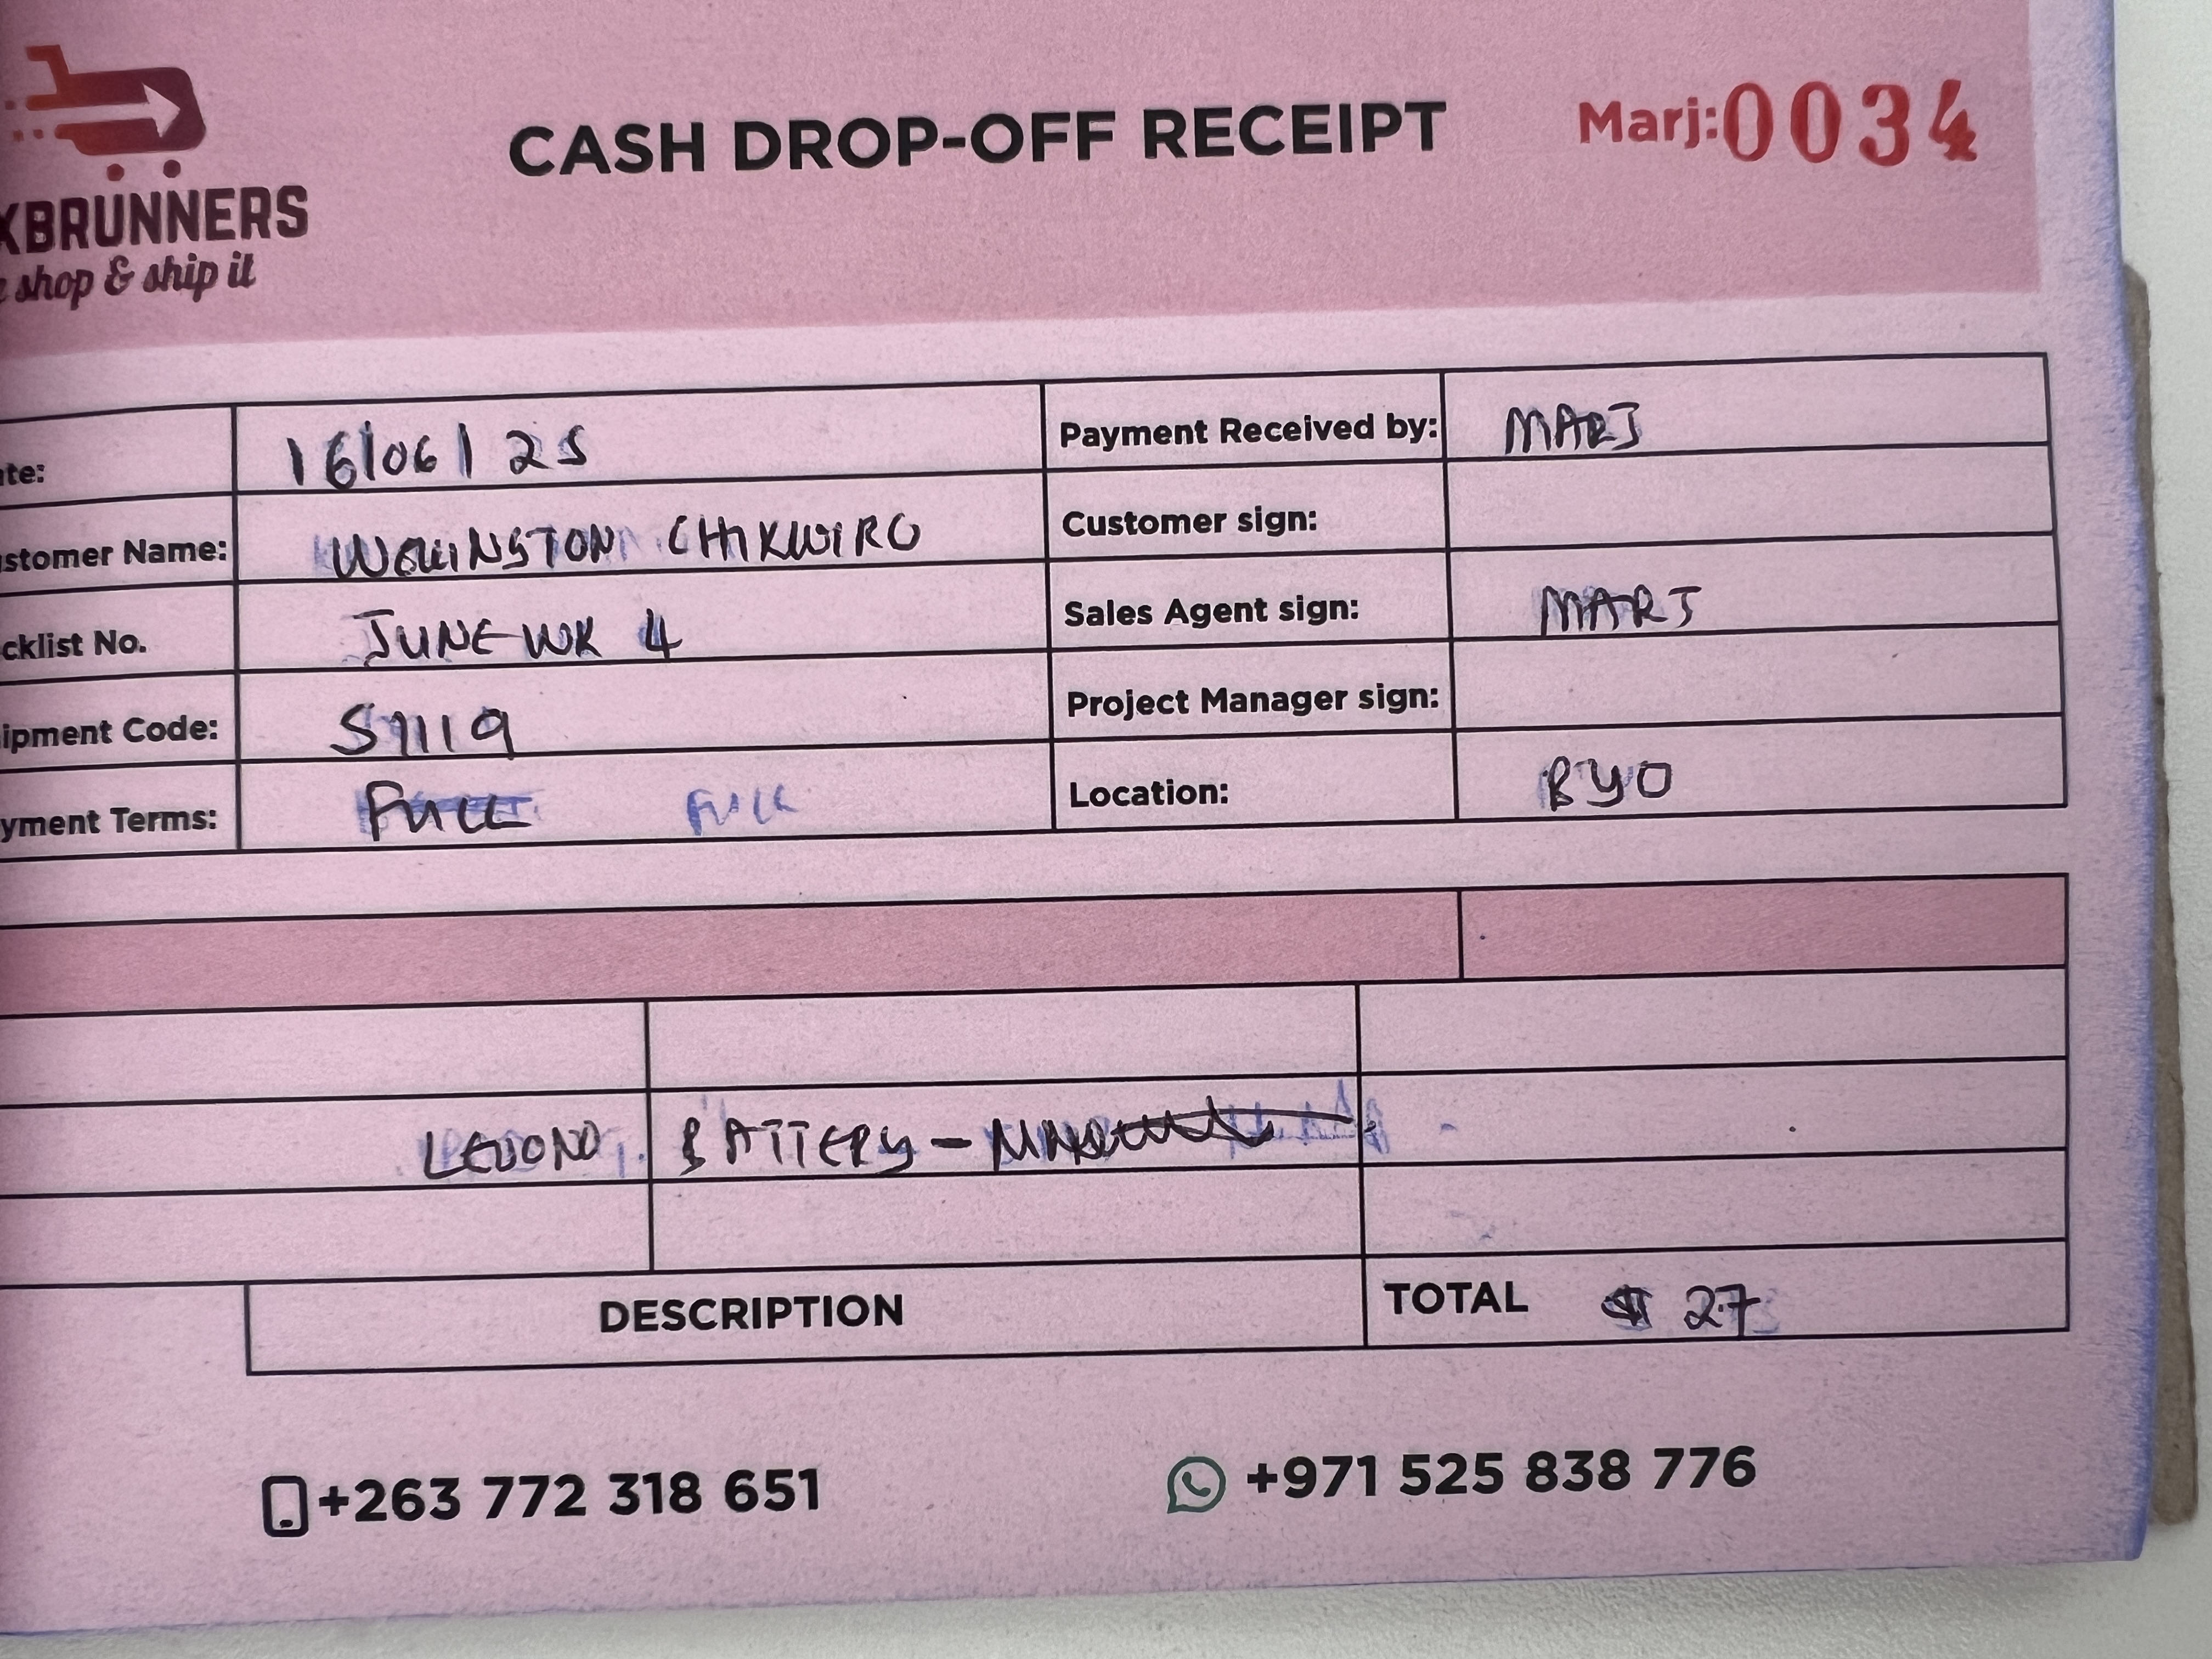 CASH DROP-OFF RECEIPT
Marj: 0034
XBRUNNERS
shop & ship it
te: 16/06/25
Payment Received by: MARJ
stomer Name: CHIKWIRO
Customer sign:
cklist No. JUNE WK 4
Sales Agent sign: MARJ
ipment Code: S1119
Project Manager sign:
yment Terms: FULL FULL
Location: BYO
BATTERY -
DESCRIPTION
TOTAL $ 27
+263 772 318 651
+971 525 838 776